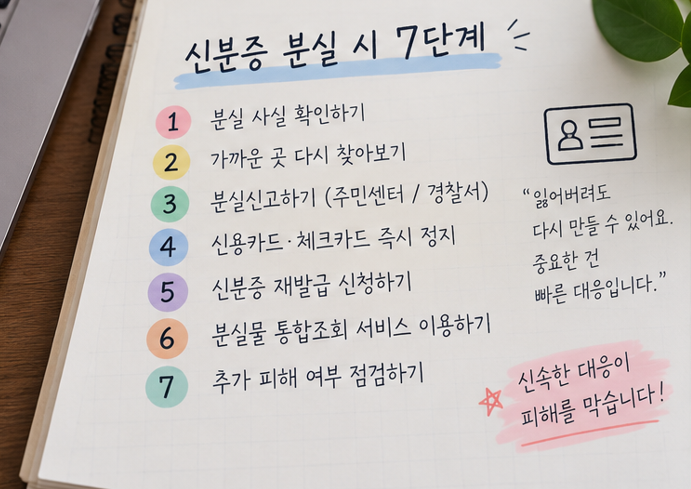 신분증 분실 시 7단계
1 분실 사실 확인하기
2 가까운 곳 다시 찾아보기
3 분실신고하기 (주민센터 / 경찰서)
4 신용카드·체크카드 즉시 정지
5 신분증 재발급 신청하기
6 분실물 통합조회 서비스 이용하기
7 추가 피해 여부 점검하기
“잃어버려도
다시 만들 수 있어요.
중요한 건
빠른 대응입니다.”
신속한 대응이
피해를 막습니다!